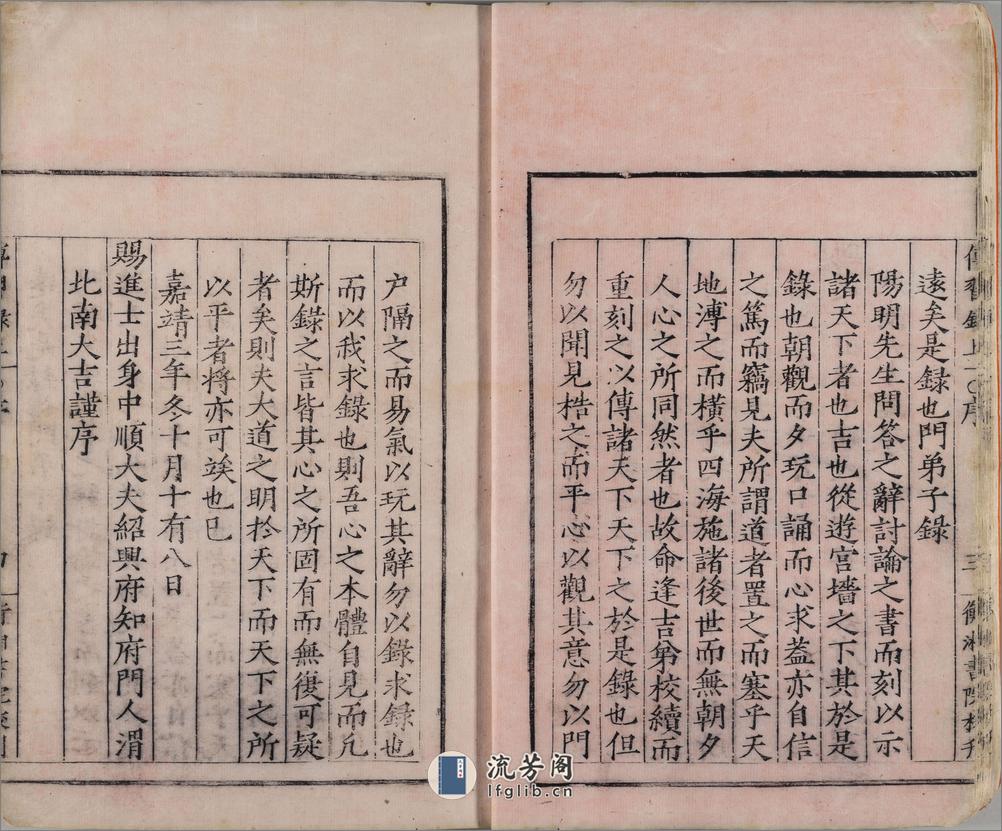 傳習錄上 序 三
遠矣是録也門弟子錄
陽明先生問答之辭討論之書而刻以示
諸天下者也吉也從遊宮墻之下其於是
錄也朝觀而夕玩口誦而心求葢亦自信
之篤而竊見夫所謂道者置之而塞乎天
地溥之而橫乎四海施諸後世而無朝夕
人心之所同然者也故命逢吉弟校續而
重刻之以傳諸天下天下之於是錄也但
勿以聞見梏之而平心以觀其意勿以門
户隔之而易氣以玩其辭勿以錄求録也
而以我求錄也則吾心之本體自見而凢
斯錄之言皆其心之所固有而無復可疑
者矣則夫大道之明於天下而天下之所
以平者將亦可竢也已
嘉靖三年冬十月十有八日
賜進士出身中順大夫紹興府知府門人渭
北南大吉謹序
流芳阁
lfglib.cn